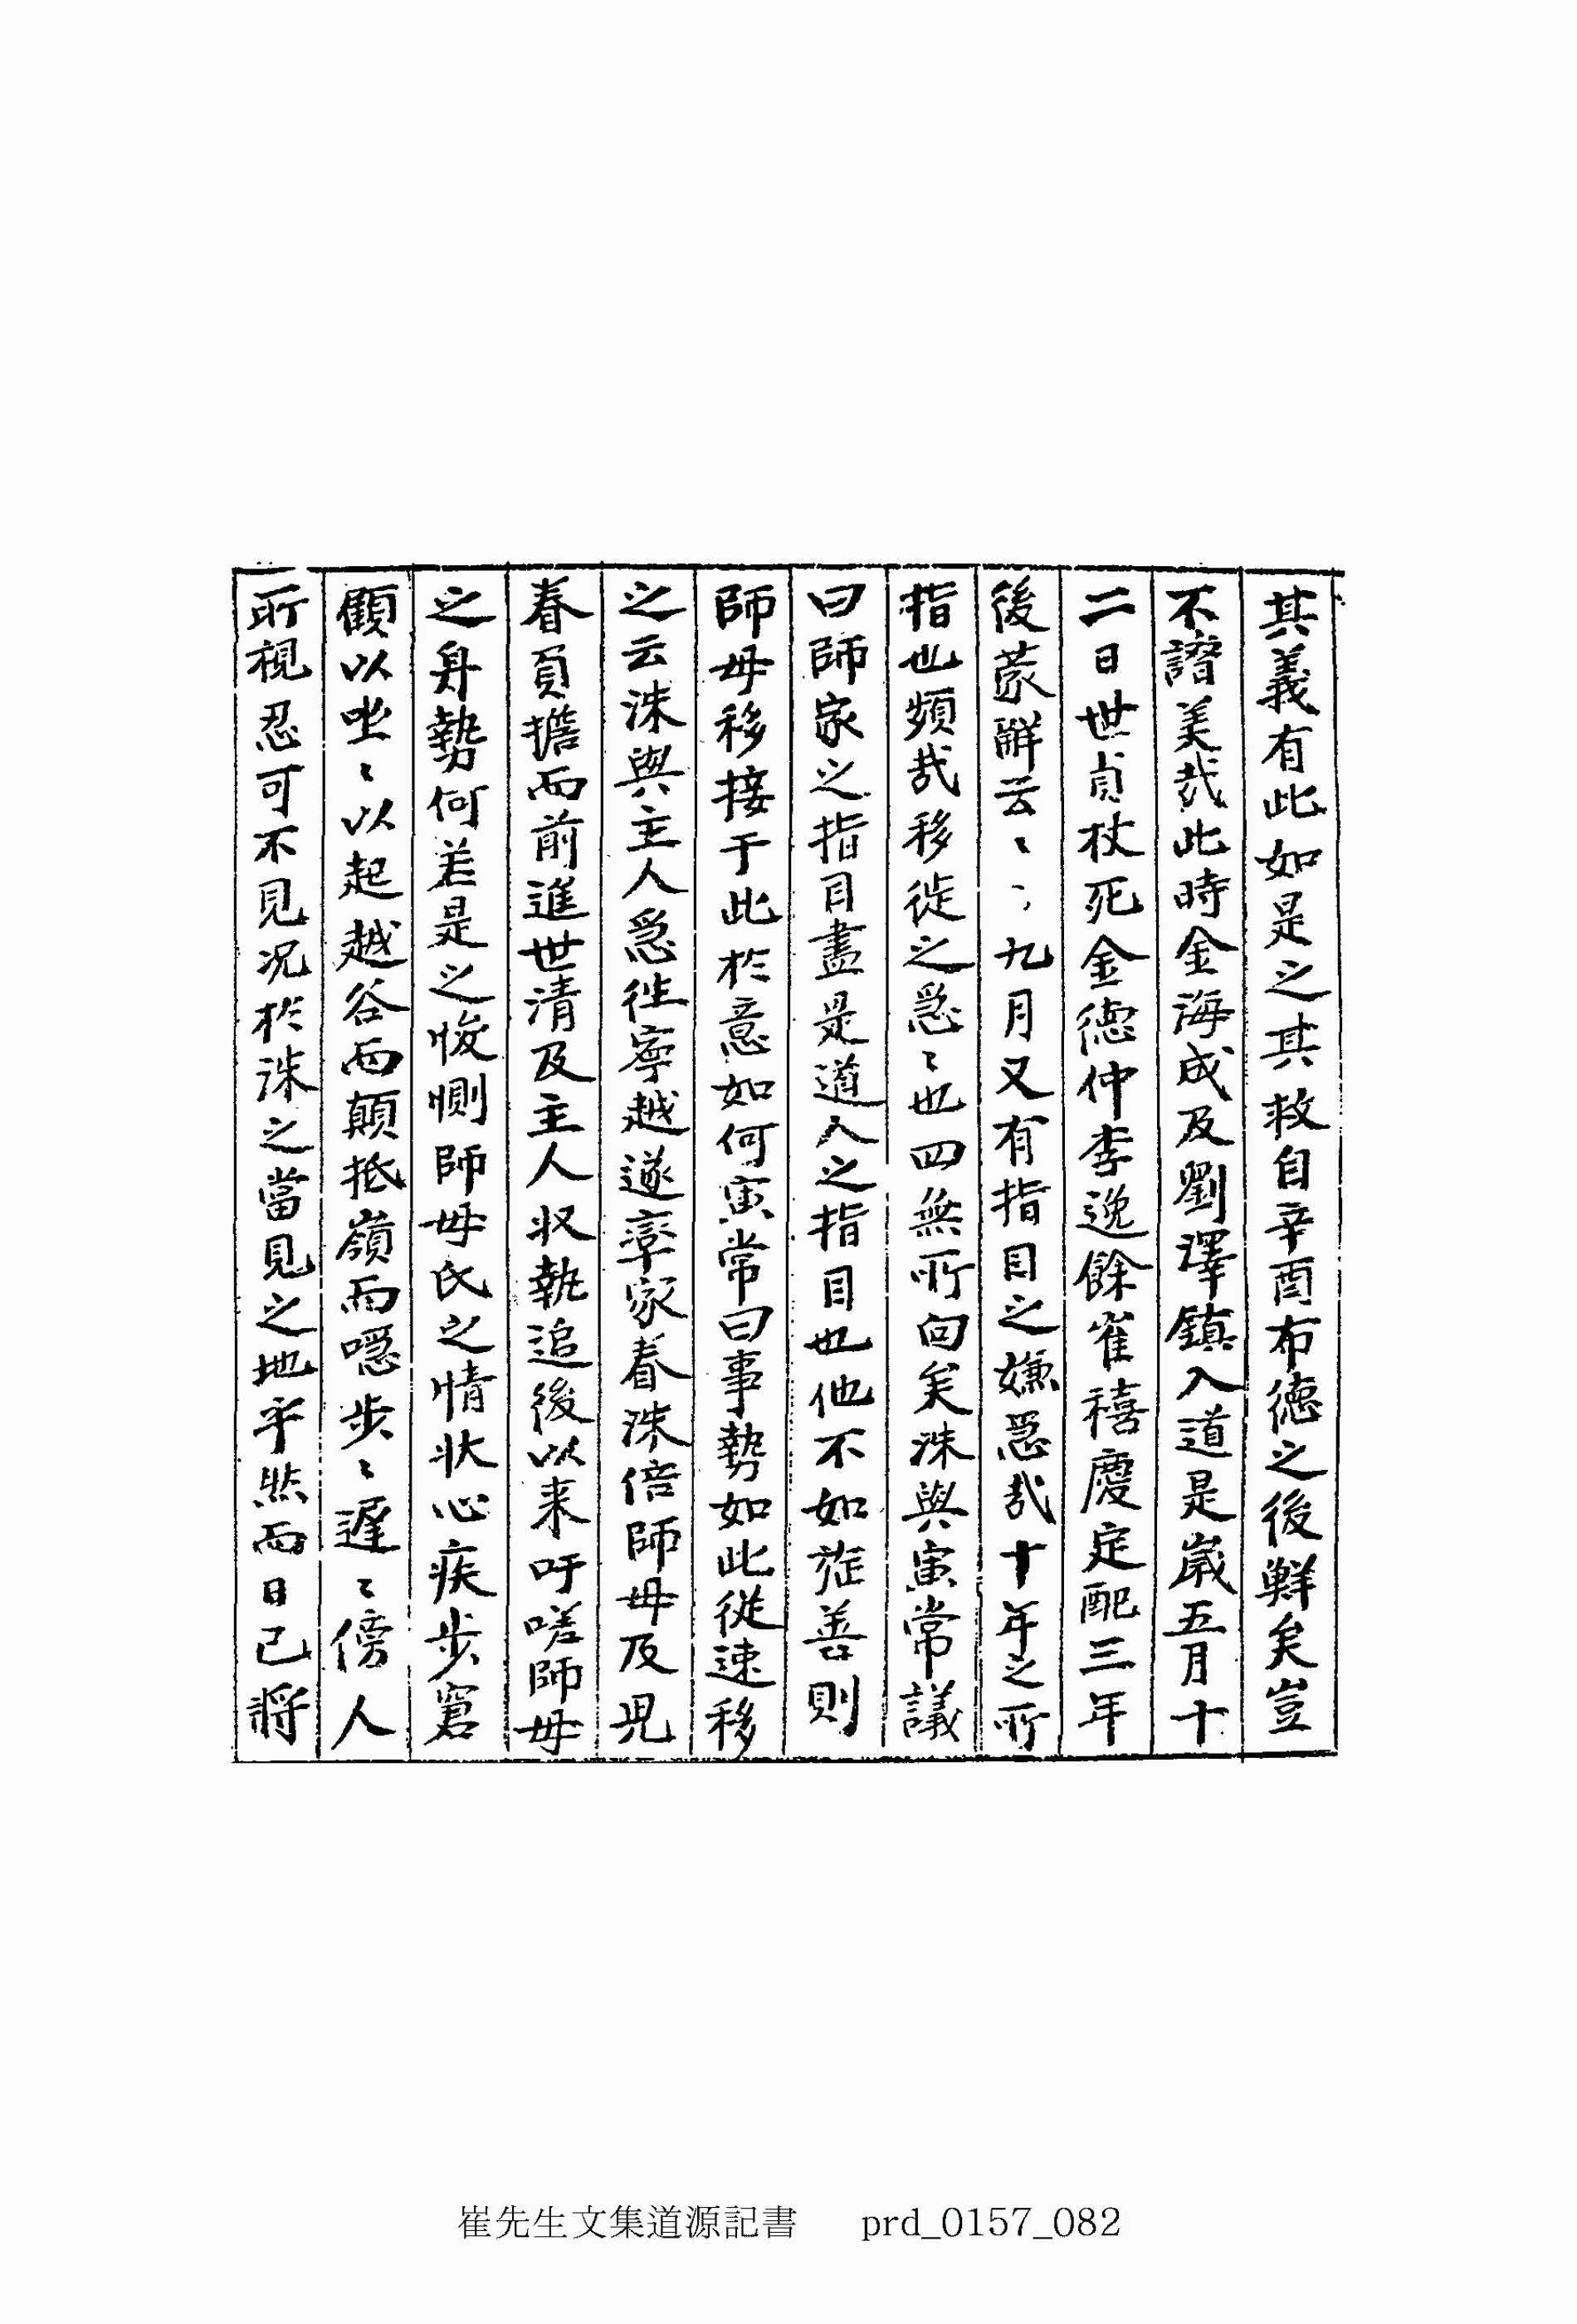 其義有此如是之其救自辛酉布德之後鮮矣豈
不讚美哉此時金海成及劉澤鎮入道是歲五月十
二日世貞杖死金德仲李逸餘崔禧慶定配三年
後蒙解云〻〻九月又有指目之嫌惡哉十年之所
指也頻哉移徙之惡〻也四無所向矣洙與寅常議
曰師家之指目盡是道人之指目也他不如旋善則
師母移接于此於意如何寅常曰事勢如此從速移
之云洙與主人爲徃寧越遂率家眷洙倍師母及兒
眷負擔而前進世清及主人收執追後以来吁嗟師母
之身勢何若是之悛惻師母氏之情状心疾步窘
顧以坐〻以起越谷而顛抵嶺而噁步〻遲〻傍人
所視忍可不見况於洙之當見之地乎然而日已將
崔先生文集道源記書 prd_0157_082